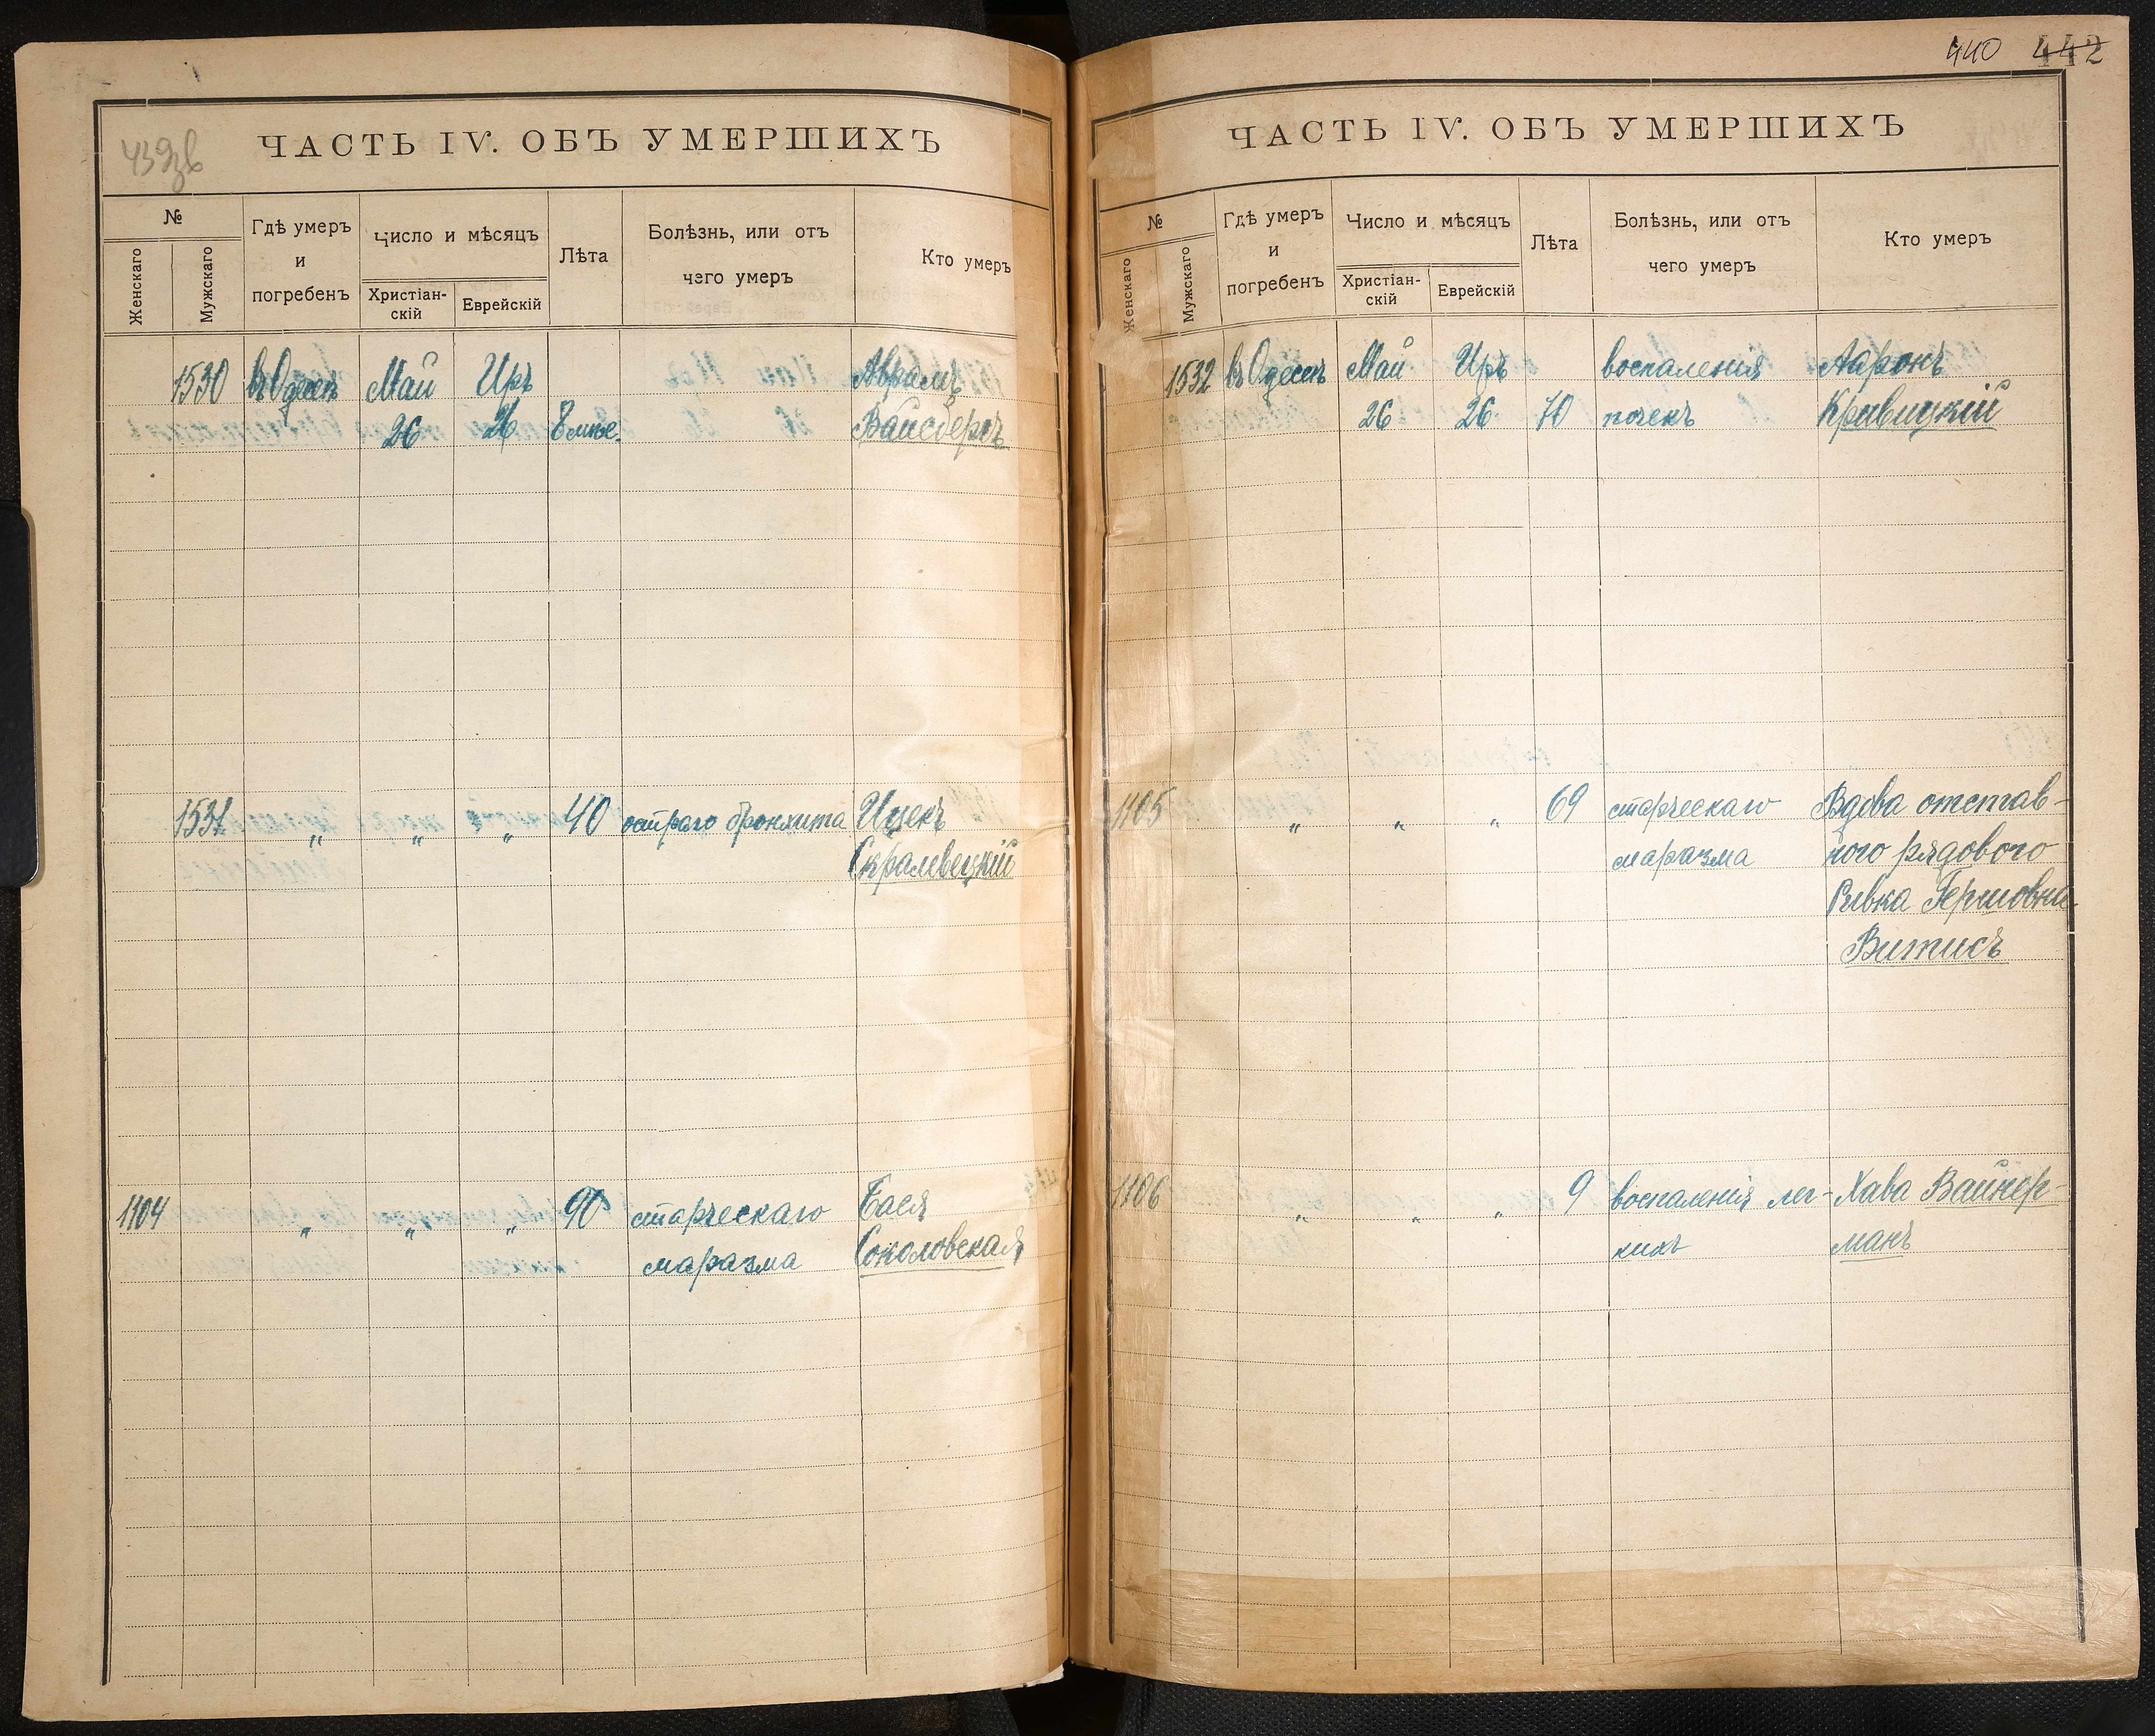 439зв
ЧАСТЬ IV. ОБЪ УМЕРШИХЪ
№
Женскаго
Мужскаго
Гдѣ умеръ
и
погребенъ
Число и мѣсяцъ
Христіан-
скій
Еврейскій
Лѣта
Болѣзнь, или отъ
чего умеръ
Кто умеръ
1530 въ Одессѣ Май Иръ Аврамъ
26 26 8 мѣс. Вайсбергъ
1531 „ „ „ 40 остраго бронхита Ицекъ
Скралевецкій
1104 „ „ „ 90 старческаго Бася
маразма Соколовская
440 442
ЧАСТЬ IV. ОБЪ УМЕРШИХЪ
№
Женскаго
Мужскаго
Гдѣ умеръ
и
погребенъ
Число и мѣсяцъ
Христіан-
скій
Еврейскій
Лѣта
Болѣзнь, или отъ
чего умеръ
Кто умеръ
1532 въ Одессѣ Май Иръ воспаленія Ааронъ
26 26 70 почекъ Кравицкій
1105 „ „ „ 69 старческаго Вдова отстав-
маразма ного рядового
Ривка Гершовна
Витисъ
1106 „ „ „ 9 воспаленія лег- Хава Вайнер-
кихъ манъ